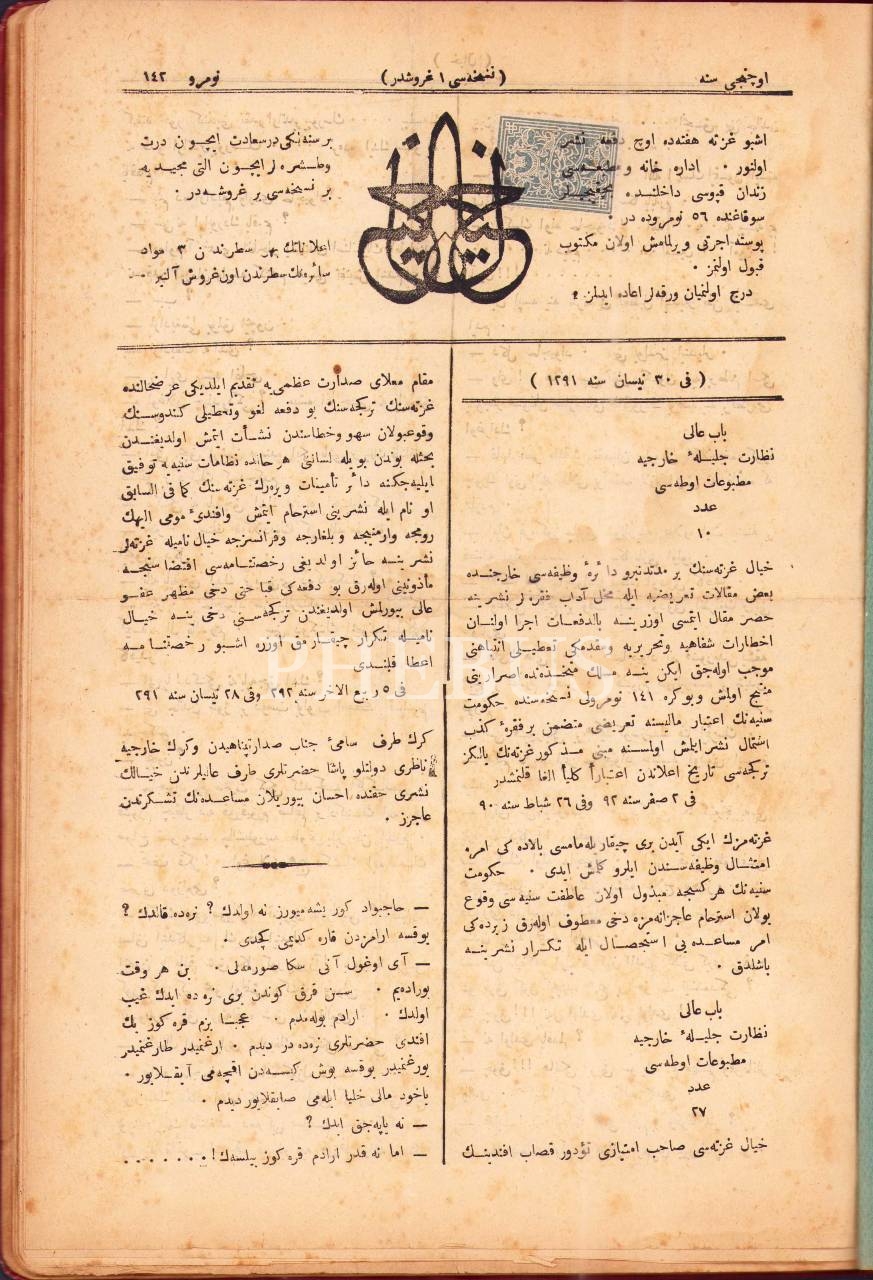 اوچنجی سنه
(نسخه‌سی ۱ غروشدر)
نومرو ۱۴۲
اشبو غزته هفته‌ده اوچ دفعه نشر
اولنور ۰ اداره خانه و مطبعه‌سی
زندان قپوسی داخلنده
سوقاغنده ۵٦ نومروده در ۰
پوسته اجرتی ویرلمامش اولان مکتوب
قبول اولنمز ۰
درج اولنمیان ورقه‌لر اعاده ایدلمز ؟
خیال
بر سنه‌لکی درسعادت ایچون درت
وطشره‌لر ایچون التی مجیدیه
بر نسخه‌سی بر غروشه‌در ۰
اعلاناتك بهر سطرندن ۳ مواد
سائره‌نك سطرندن اون غروش آلنیر ۰
( فی ۳۰ نیسان سنه ۱۲۹۱ )
باب عالی
نظارت جلیلۀ خارجیه
مطبوعات اوطه‌سی
عدد
۱۰
خیال غزته‌سنك بر مدتدنبرو دائرۀ وظیفه‌سی خارجنده
بعض مقالات تعریضیه ایله مخل آداب فقره‌لر نشرینه
حصر مقال ایتمسی اوزرینه بالدفعات اجرا اولنان
اخطارات شفاهیه وتحریریه ومقدمکی تعطیلی انتباهنی
موجب اوله‌جق ایکن ینه مسلك متخذنده اصرارینی
منتج اولمش وبوکره ۱۴۱ نومرولی نسخه‌سنده حکومت
سنیه‌نك اعتبار مالیسنه تعریضی متضمن بر فقرۀ کذب
اشتمال نشر ایلمش اولمسنه مبنی مذکور غزته‌نك یالکز
ترکجه‌سی تاریخ اعلاندن اعتباراً کلیاً الغا قلنمشدر
فی ۲ صفر سنه ۹۲ وفی ۲٦ شباط سنه ۹۰
غزته‌مزك ایکی آیدن بری چیقاریله‌مامسی بالاده کی امره
امتثال وظیفه‌سندن ایلرو کلمش ایدی ۰ حکومت
سنیه‌نك هر کسجه مبذول اولان عاطفت سنیه‌سی وقوع
بولان استرحام عاجزانه‌مزه دخی معطوف اوله‌رق زیرده‌کی
امر مساعده‌یی استحصال ایله تکرار نشرینه
باشلدق ۰
باب عالی
نظارت جلیلۀ خارجیه
مطبوعات اوطه‌سی
عدد
۲۷
خیال غزته‌سی صاحب امتیازی تؤدور قصاب افندینك
مقام معلای صدارت عظمی‌یه تقدیم ایلدیکی عرضحالنده
غزته‌سنك ترکجه‌سنك بو دفعه لغو وتعطیلی کندوسنك
وقوعبولان سهو وخطاسندن نشأت ایتمش اولدیغندن
بحثله بوندن بویله لساننی هر حالده نظامات سنیه‌یه توفیق
ایلیه‌جکنه دائر تأمینات ویره‌رك غزته‌سنك کما فی السابق
او نام ایله نشرینی استرحام ایتمش وافندئ مومی الیهك
رومجه وارمنیجه وبلغارجه وفرانسزجه خیال نامیله غزته‌لر
نشرینه حائز اولدیغی رخصتنامه‌سی اقتضاسنجه
مأذونیتی اوله‌رق بو دفعه‌کی قباحتی دخی مظهر عفو
عالی بیورلمش اولدیغندن ترکجه‌سنی دخی ینه خیال
نامیله تکرار چیقارمق اوزره اشبو رخصتنامه
اعطا قلندی
فی ۵ ربیع الاخر سنه ۲۹۲ وفی ۲۸ نیسان سنه ۲۹۱
کرك طرف سامئ جناب صدارتپناهیدن وکرك خارجیه
ناظری دولتلو پاشا حضرتلری طرف عالیلرندن خیالك
نشری حقنده احسان بیوریلان مساعده‌نك تشکرندن
عاجزز ۰
— حاجیواد کوریشه‌میورز نه اولدك ؟ نره‌ده قالدك ؟
یوقسه ارامزدن قاره کدیمی کچدی ۰
— آی اوغول آنی سکا صورمه‌لی ۰ بن هر وقت
بوراده‌یم ۰ سن قرق کوندن بری نره‌ده ایدك غیب
اولدك ۰ ارادم بوله‌مدم ۰ عجبا بزم قره کوز بك
افندی حضرتلری نره‌ده در دیدم ۰ ارغنمیدر طارغنمیدر
یورغنمیدر یوقسه بوش کیسه‌دن اقچه‌می آیقلایور ۰
یاخود مالی خلیا ایله‌می صایقلایور دیدم ۰
— نه یاپه‌جق ایدك ؟
— اما نه قدر ارادم قره کوز بیلسه‌ك ! . . . . . . .
PHEBUS